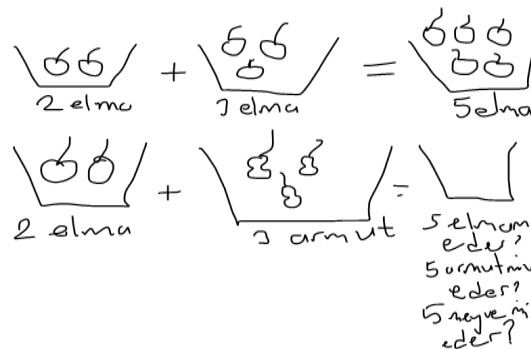 + =
2 elma 3 elma 5 elma
+ =
2 elma 3 armut 5 elmamı
eder?
5 armutmu
eder?
5 meyvemi
eder?